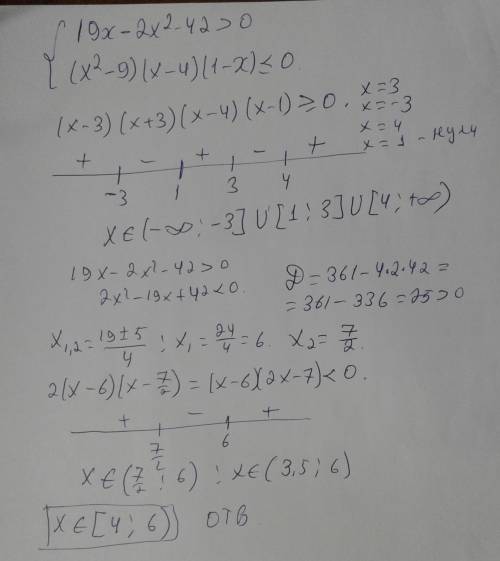 { 19x - 2x² - 42 > 0
(x² - 9)(x - 4)(1 - x) ≤ 0
(x - 3)(x + 3)(x - 4)(x - 1) ≥ 0. x = 3
x = -3
x = 4
x = 1 - нули
+ - + - +
-3 1 3 4
x ∈ (-∞; -3] ∪ [1; 3] ∪ [4; +∞)
19x - 2x² - 42 > 0
2x² - 19x + 42 < 0.
D = 361 - 4·2·42 =
= 361 - 336 = 25 > 0
x₁,₂ = (19 ± 5)/4 ; x₁ = 24/4 = 6. x₂ = 7/2.
2(x - 6)(x - 7/2) = (x - 6)(2x - 7) < 0.
+ - +
7/2 6
x ∈ (7/2; 6) ; x ∈ (3,5; 6)
x ∈ [4; 6) ОТВ